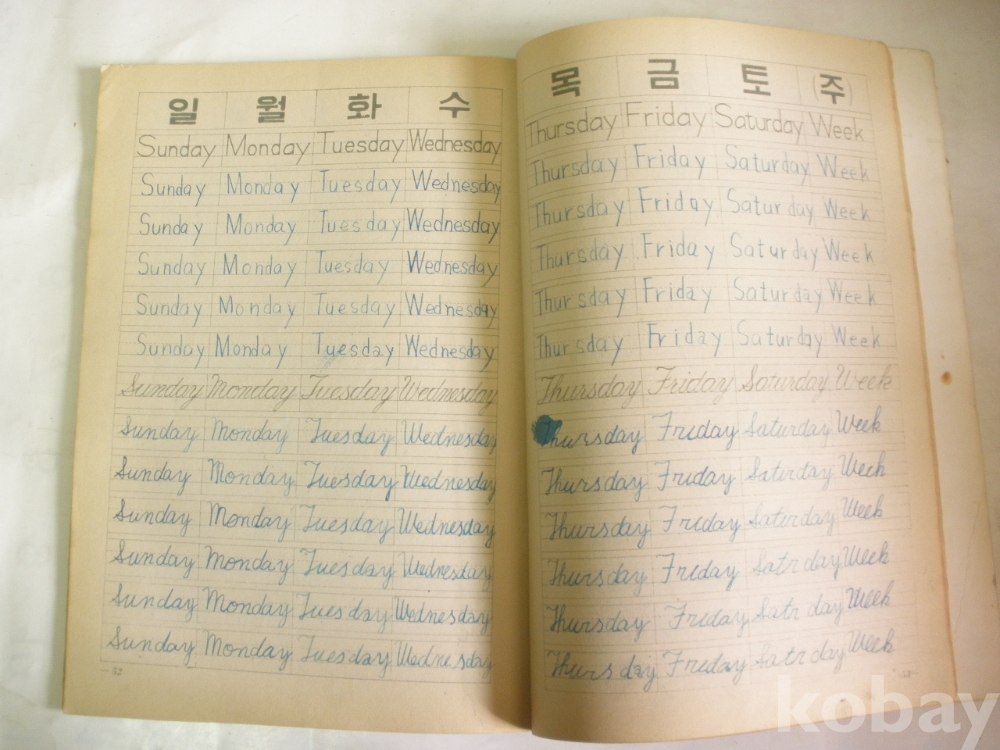 일 월 화 수
Sunday Monday Tuesday Wednesday
Sunday Monday Tuesday Wednesday
Sunday Monday Tuesday Wednesday
Sunday Monday Tuesday Wednesday
Sunday Monday Tuesday Wednesday
Sunday Monday Tuesday Wednesday
Sunday Monday Tuesday Wednesday
Sunday Monday Tuesday Wednesday
Sunday Monday Tuesday Wednesday
Sunday Monday Tuesday Wednesday
Sunday Monday Tuesday Wednesday
Sunday Monday Tuesday Wednesday
Sunday Monday Tuesday Wednesday
—52
목 금 토 (주)
Thursday Friday Saturday Week
Thursday Friday Saturday Week
Thursday Friday Saturday Week
Thursday Friday Saturday Week
Thursday Friday Saturday Week
Thursday Friday Saturday Week
Thursday Friday Saturday Week
Thursday Friday Saturday Week
Thursday Friday Saturday Week
Thursday Friday Saturday Week
Thursday Friday Satrday Week
Thursday Friday Satrday Week
Thursday Friday Satrday Week
kobay